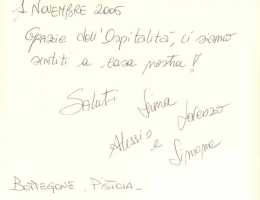 1 NOVEMBRE 2005
GRAZIE dell'Ospitalità, ci siamo
sentiti a casa nostra!
Saluti Irma Lorenzo
Alessio e Simone
BOTTEGONE, PISTOIA -